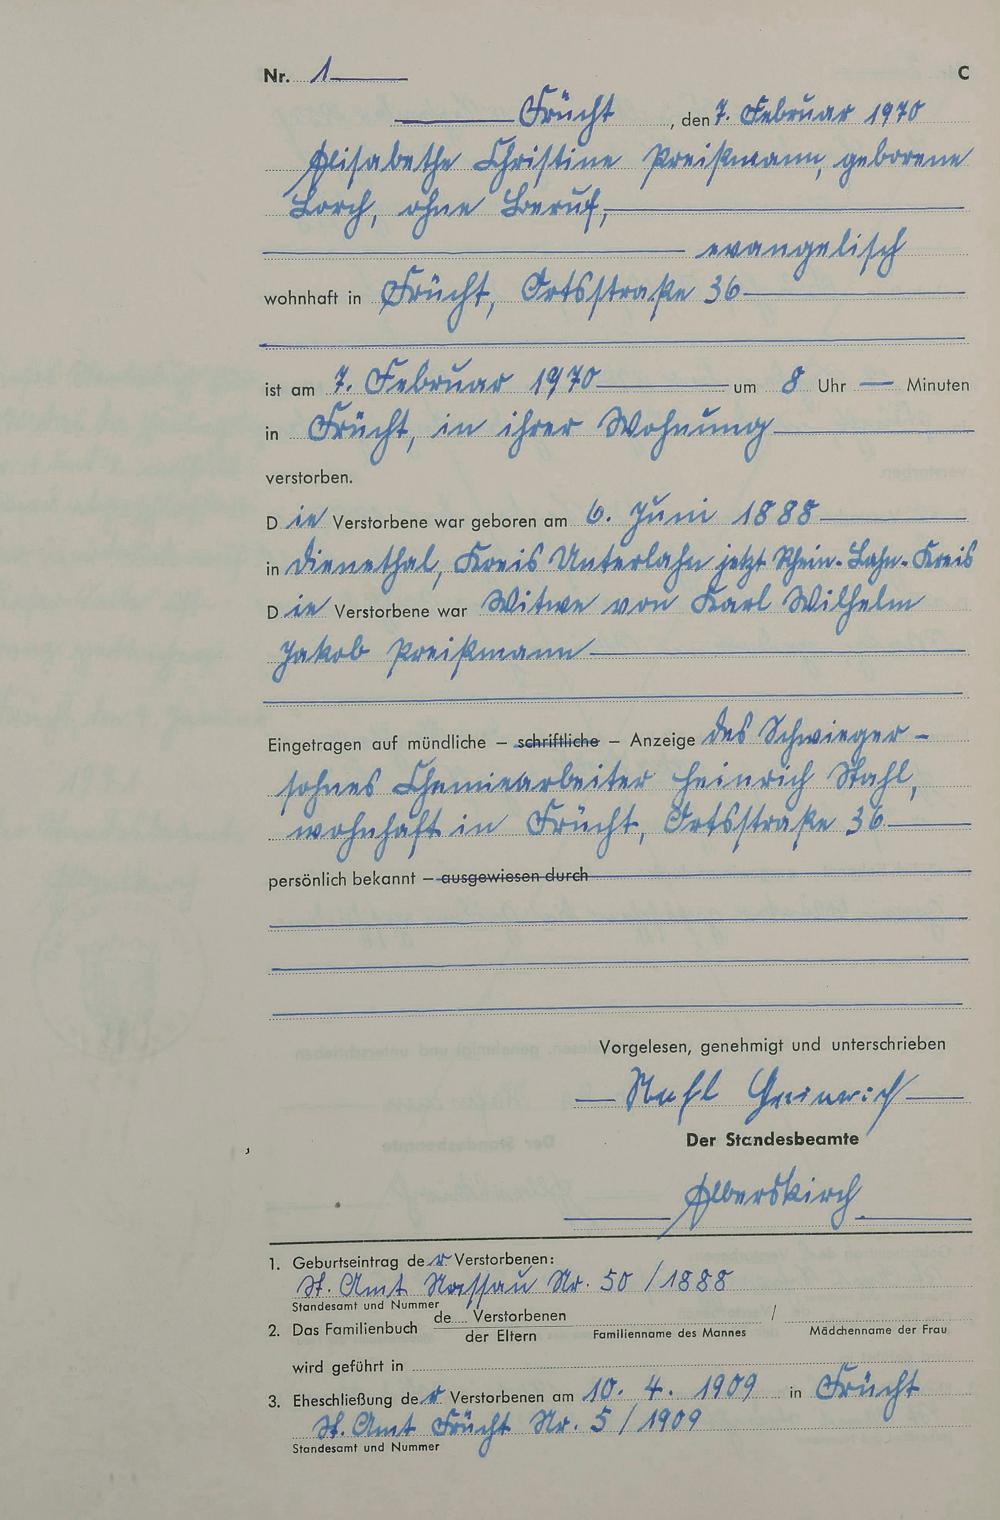 Nr. 1 C
Frücht, den 7. Februar 1970
Elisabethe Christine Preißmann, geborene
Lorch, ohne Beruf,
evangelisch
wohnhaft in Frücht, Ortsstraße 36
ist am 7. Februar 1970 um 8 Uhr — Minuten
in Frücht, in ihrer Wohnung
verstorben.
Die Verstorbene war geboren am 6. Juni 1888
in Dienethal, Kreis Unterlahn jetzt Rhein-Lahn-Kreis
Die Verstorbene war Witwe von Karl Wilhelm
Jakob Preißmann
Eingetragen auf mündliche – schriftliche – Anzeige des Schwieger-
sohnes Chemiearbeiter Heinrich Stahl,
wohnhaft in Frücht, Ortsstraße 36
persönlich bekannt – ausgewiesen durch
Vorgelesen, genehmigt und unterschrieben
Stahl Heinrich
Der Standesbeamte
Elberskirch
1. Geburtseintrag der Verstorbenen:
St. Amt Nassau Nr. 50/1888
Standesamt und Nummer
2. Das Familienbuch de.... Verstorbenen /
der Eltern Familienname des Mannes Mädchenname der Frau
wird geführt in
3. Eheschließung der Verstorbenen am 10. 4. 1909 in Frücht
St. Amt Frücht Nr. 5/1909
Standesamt und Nummer